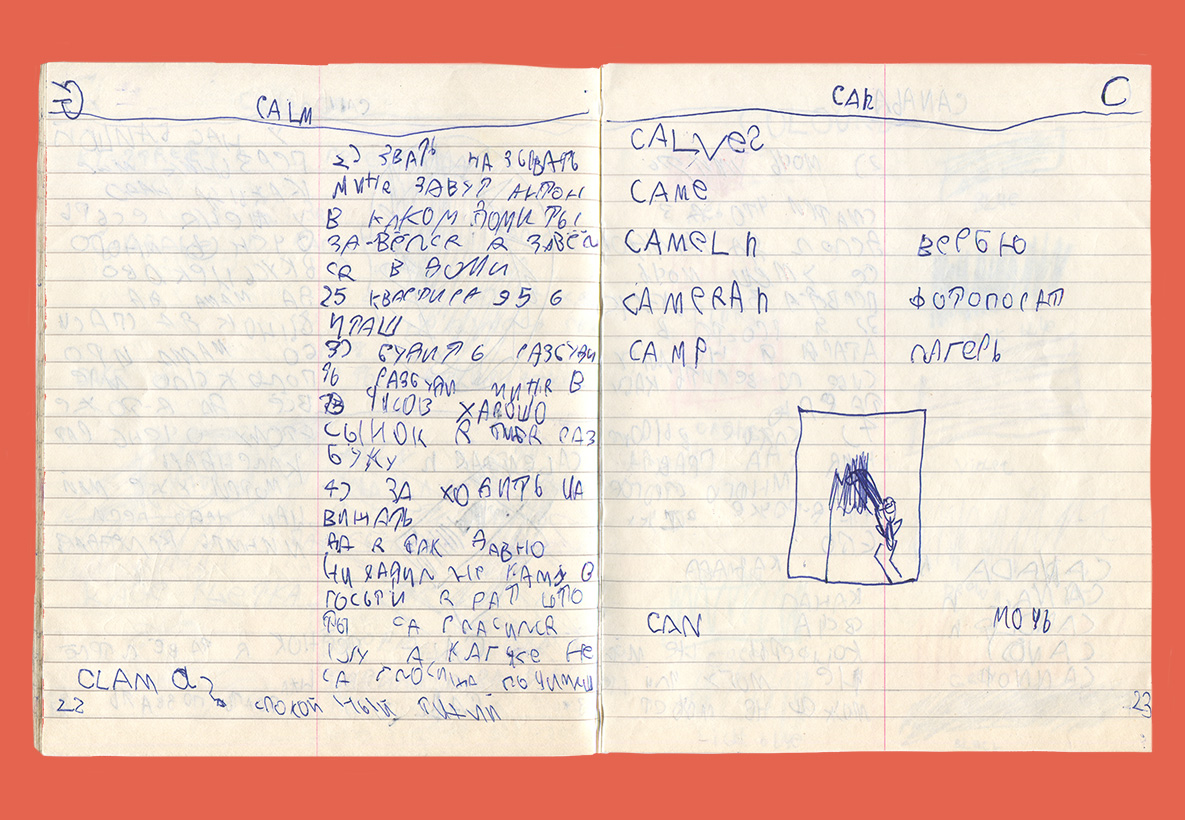 CALM
2) ЗВАТЬ НА ЗЫВАТЬ
МИНЯ ЗАВУТ АНТОН
В КАКОМ ДОМИ ТЫ
ЗА-ВЁЛСЯ Я ЗАВЁЛ
СЯ В ДОМИ
25 КВАРТИРА 95 6
ИТАШ
3) БУДИТЬ РАЗБУДИ
ТЬ РАЗБУДИ МИНЯ В
ЧИСОВ ХАРАШО
СЫНОК Я ТИБЯ РАЗ
БУЖУ
4) ЗА ХОДИТЬ НА
ВИЩАТЬ
ДА Я ТАК ДАВНО
НИ ХАДИЛ НЕ КАМУ В
ГОСЬТИ Я РАТ ШТО
ТЫ СА ГЛАСИЛСЯ
А КАГЖЕ НЕ
СА ГЛОСИЦА
CLAM a
22 СПОКОЙ НЫЙ ТИХИЙ
CAN C
CALVES
CAME
CAMEL n ВЕРБЮ
CAMERA n ФОТОПОРАТ
CAMP ЛАГЕРЬ
CAN МОЧЬ
23